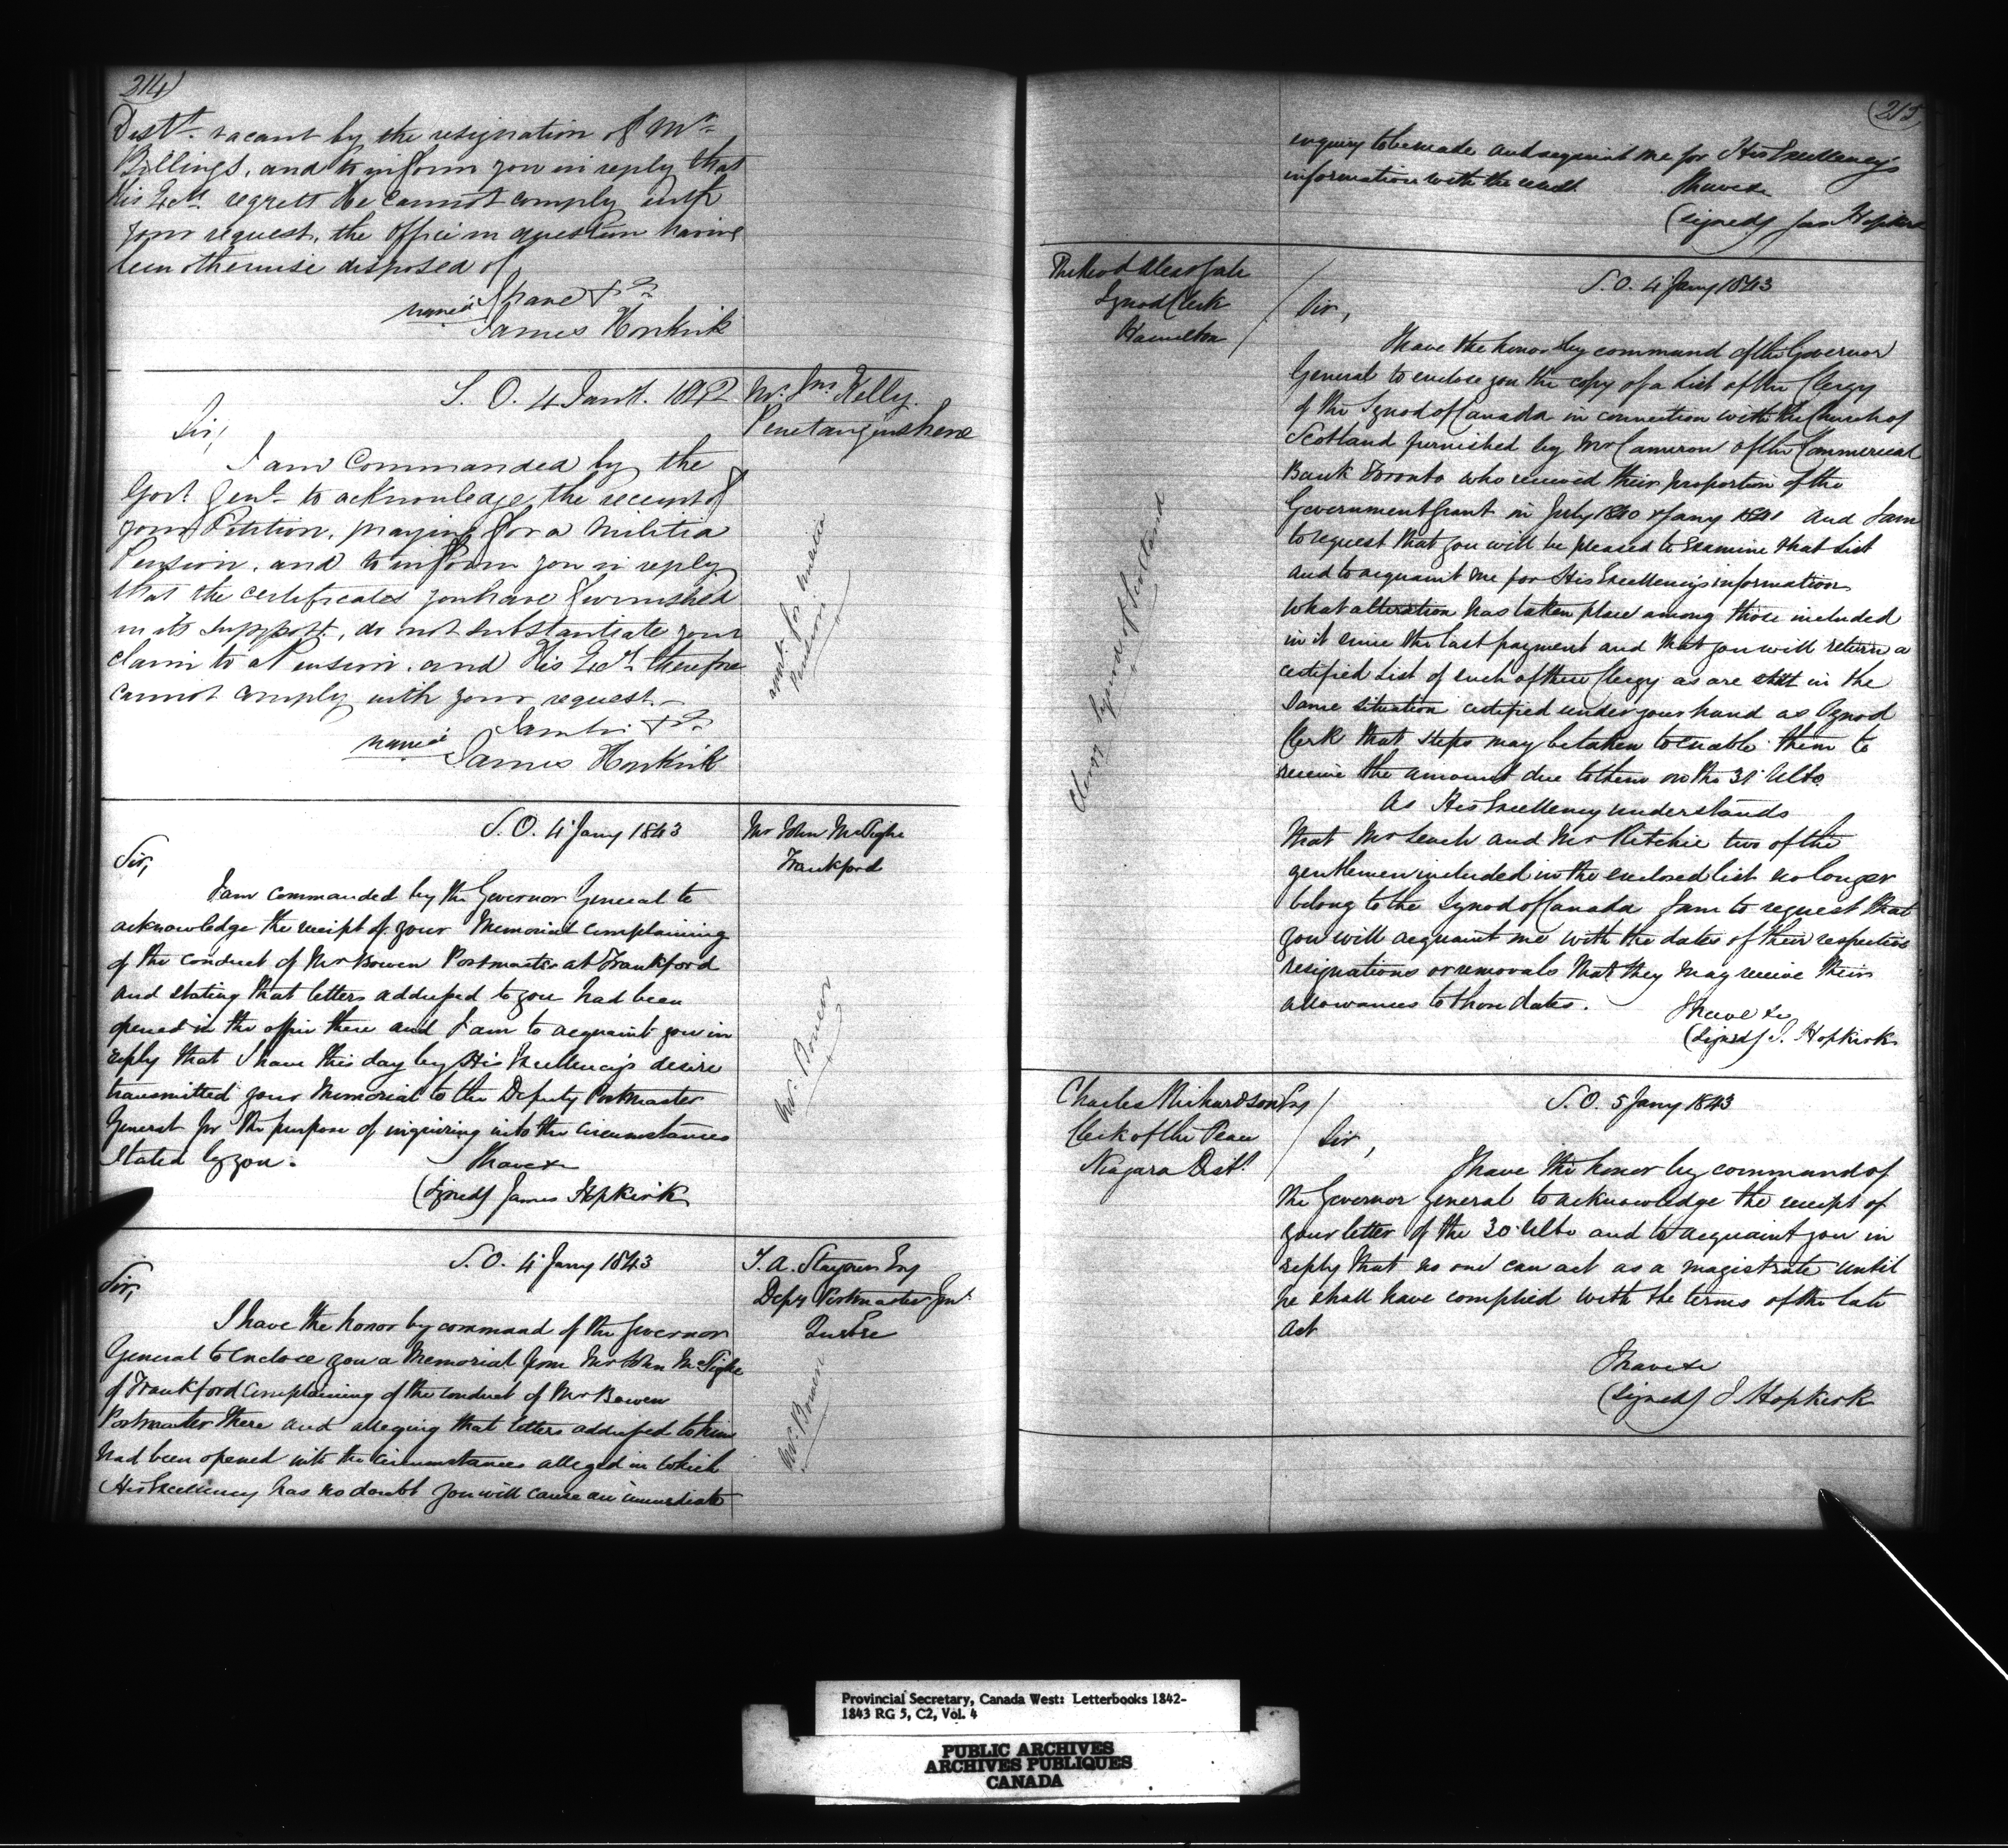 214
Distt. vacant by the resignation of Mr
Billings, and to inform you in reply that
His Excy. regrets He cannot comply with
your request, the Office in question having
been otherwise disposed of
I have &c
James Hopkirk
S. O. 4 Jany. 1842
Mr. Jno. Kelly.
Penetanguishene
Sir,
I am Commanded by the
Govr. Genl. to acknowledge the receipt of
your Petition, praying for a Militia
Pension, and to inform you in reply
that the certificates you have furnished
in its support, do not substantiate your
claim to a Pension, and His Excy. therefore
cannot comply with your request.
James Hopkirk
appl. for militia
Pension
S. O. 4 Jany 1843
Mr John McTighe
Frankford
Sir,
I am commanded by the Governor General to
acknowledge the receipt of your Memorial complaining
of the conduct of Mr Bowen Postmaster at Frankford
and stating that letters addressed to you had been
opened in the office there and I am to acquaint you in
reply that I have this day by His Excellency's desire
transmitted your Memorial to the Deputy Postmaster
General for the purpose of inquiring into the circumstances
stated by you.
I have &c
(Signed) James Hopkirk
Mr. Bowen
S. O. 4 Jany 1843
T. A. Stayner Esq
Depy Postmaster Genl.
Quebec
Sir,
I have the honor by command of the Governor
General to enclose you a Memorial from Mr John McTighe
of Frankford complaining of the conduct of Mr Bowen
Postmaster there and alleging that letters addressed to him
had been opened with the circumstances alleged in which
His Excellency has no doubt you will cause an immediate
Mr. Bowen
215
enquiry to be made and acquaint me for His Excellency's
information with the result I have &c
(signed) Jas Hopkirk
The Revd Alexr Gale
Synod Clerk
Hamilton
S. O. 4 Jany 1843
Sir,
I have the honor by command of the Governor
General to enclose you the copy of a List of the Clergy
of the Synod of Canada in connection with the Church of
Scotland furnished by Mr Cameron of the Commercial
Bank Toronto who received their proportion of the
Government Grant in July 1840 & Jany 1841 and I am
to request that you will be pleased to examine that List
and to acquaint me for His Excellency's information
what alteration has taken place among those included
in it since the last payment and that you will return a
certified List of such of these Clergy as are still in the
same situation certified under your hand as Synod
Clerk that steps may be taken to enable them to
receive the amount due to them on the 31 Ulto.
As His Excellency understands
that Mr Leach and Mr Ritchie two of the
gentlemen included in the enclosed list no longer
belong to the Synod of Canada I am to request that
you will acquaint me with the dates of their respective
resignations or removals that they may receive their
allowances to those dates.
I have &c
(signed) J. Hopkirk
Clergy Synod of Scotland
Charles Richardson Esq
Clerk of the Peace
Niagara Distt.
S. O. 5 Jany 1843
Sir,
I have the honor by command of
the Governor General to acknowledge the receipt of
your letter of the 30 Ulto and to acquaint you in
reply that no one can act as a magistrate until
he shall have complied with the terms of the late
Act
I have &c
(signed) J. Hopkirk
Provincial Secretary, Canada West: Letterbooks 1842-
1843 RG 5, C2, Vol. 4
PUBLIC ARCHIVES
ARCHIVES PUBLIQUES
CANADA